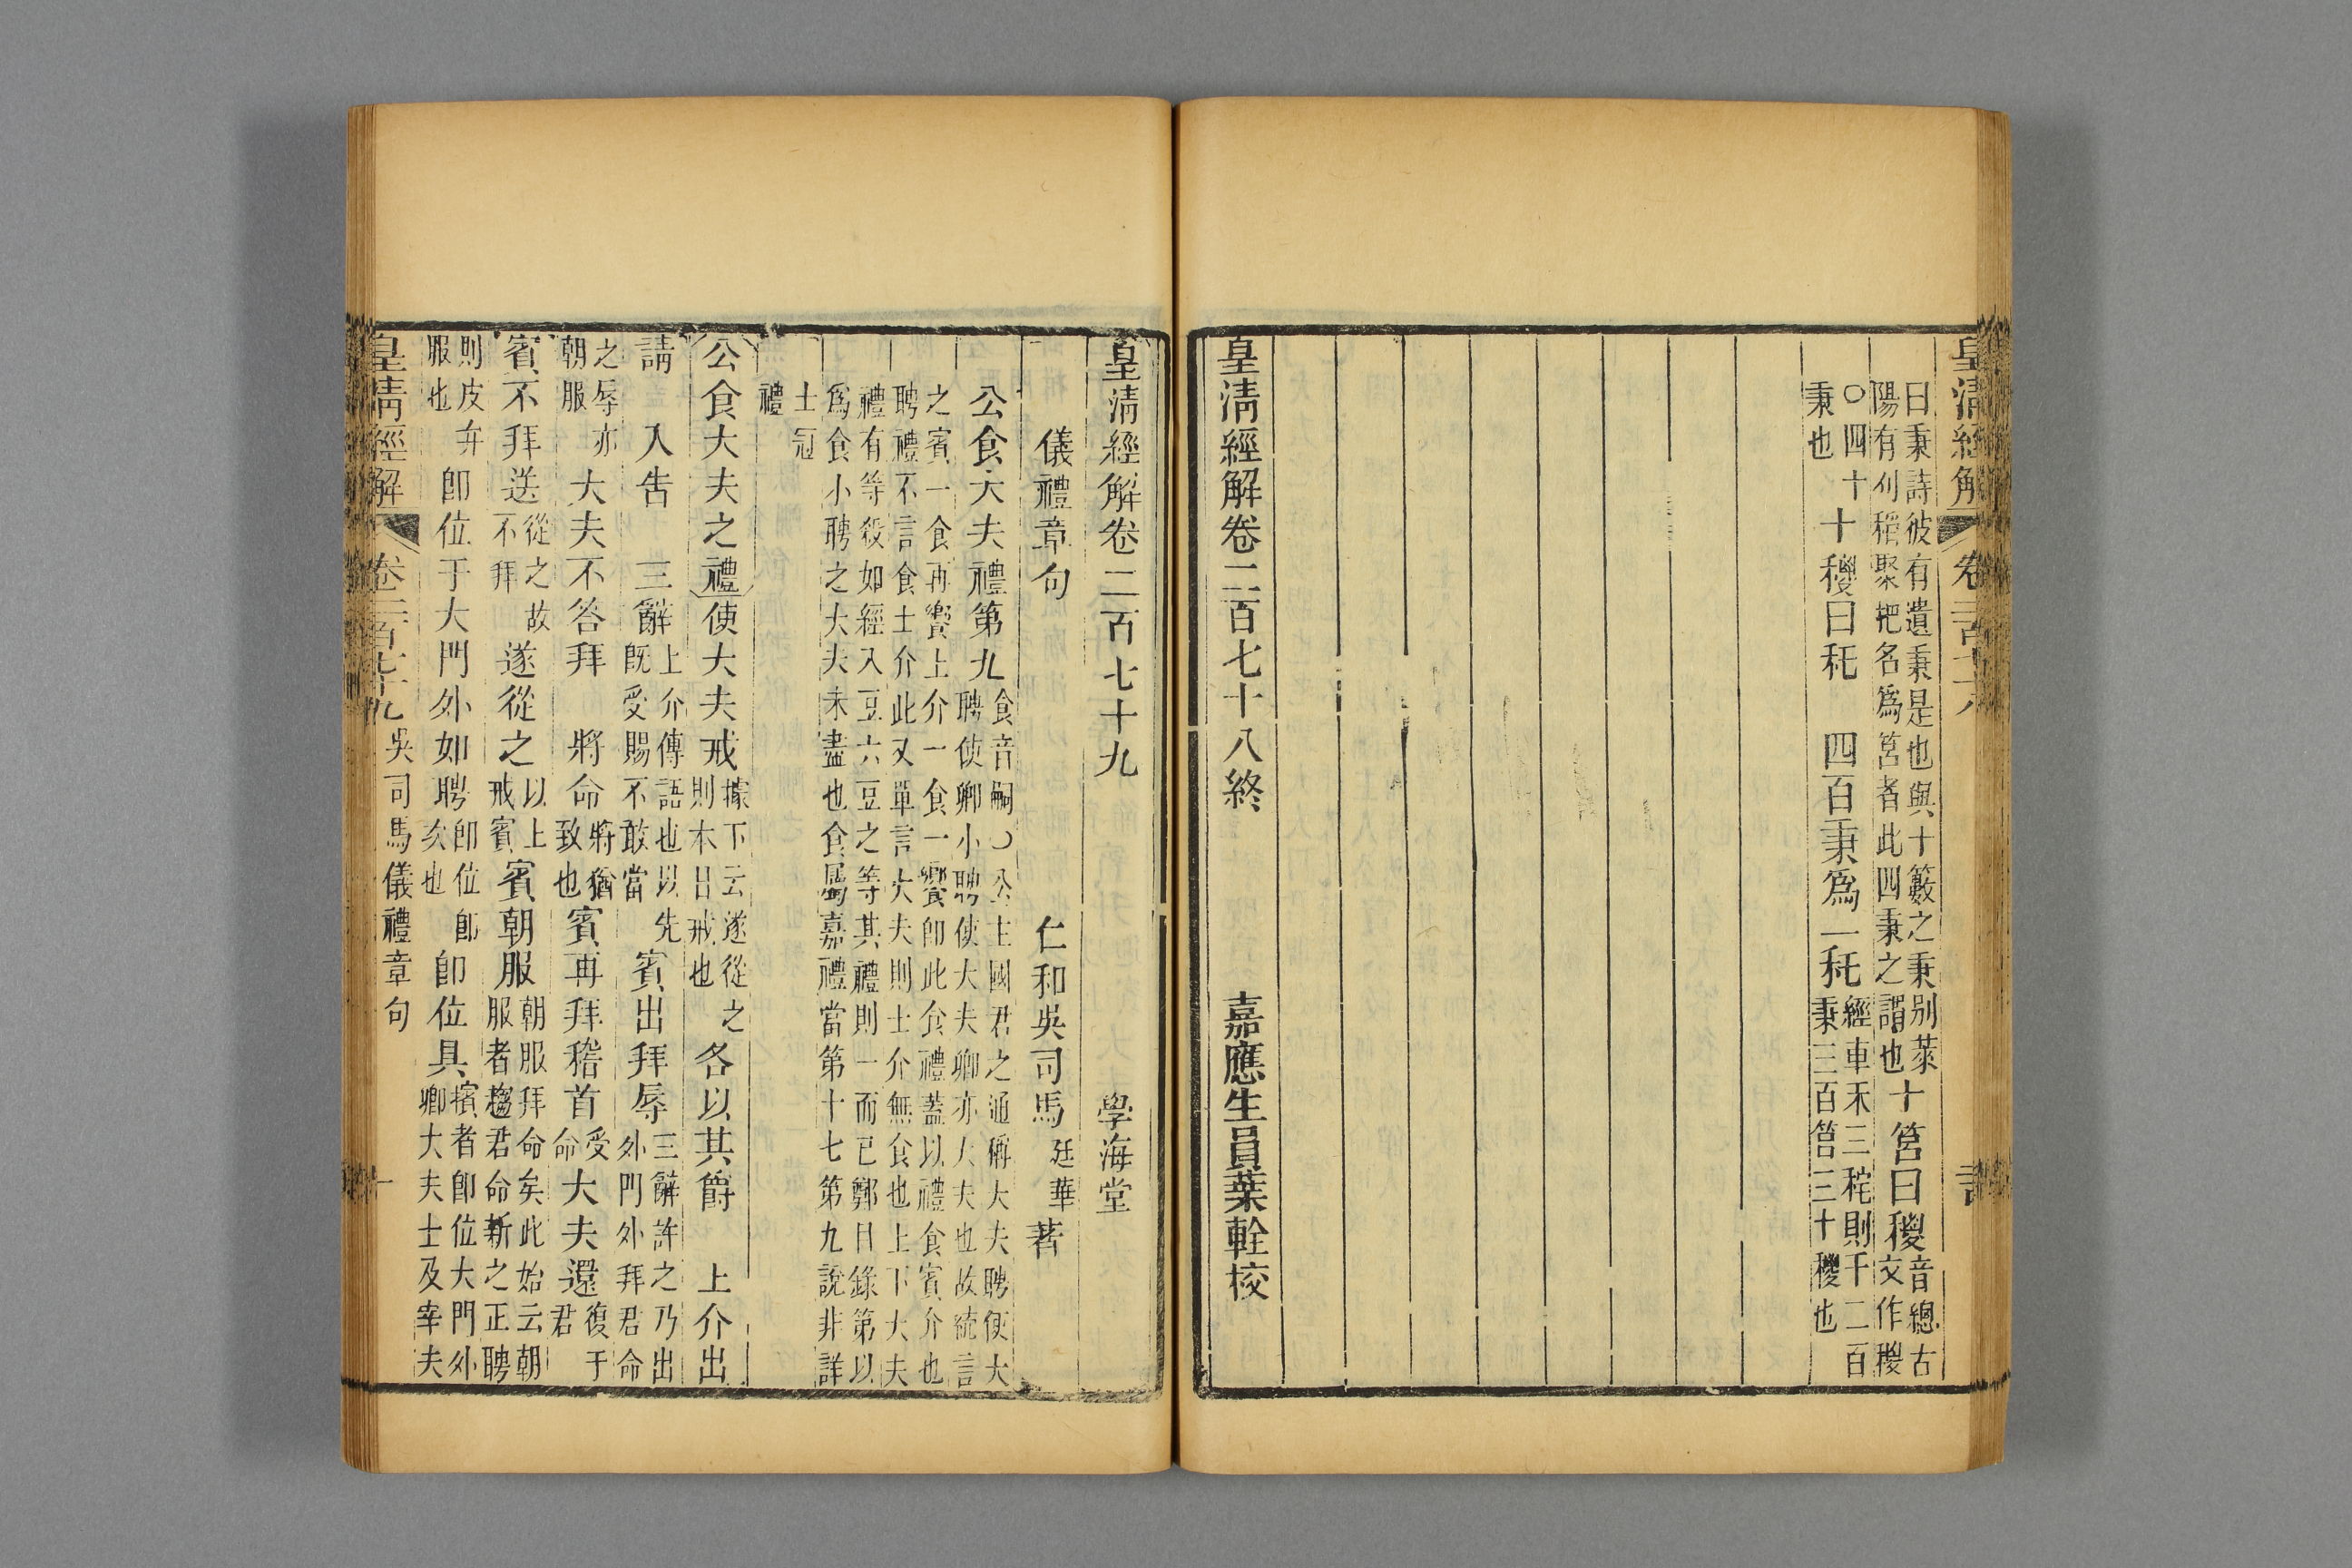 皇清經解 卷二百七十八
曰秉詩彼有遺秉是也與十籔之秉别萊
陽有刈稻聚把名爲筥者此四秉之謂也
十筥曰稯
音總古
文作稯
〇四十
秉也
十稯曰秅 四百秉爲一秅
經車禾三秅則千二百
秉三百筥三十稯也
皇清經解卷二百七十八終 嘉應生員葉輇校
皇清經解卷二百七十九 學海堂
儀禮章句 仁和吳司馬廷華著
公食大夫禮第九
食音嗣〇公主國君之通稱大夫聘使大
聘使卿小聘使大夫卿亦大夫也故統言
之賓一食再饗上介一食一饗卽此食禮蓋以禮食賓介也
聘禮不言食士介此又單言大夫則士介無食也上下大夫
禮有等殺如經入豆六豆之等其禮則一而已鄭目錄第以
爲食小聘之大夫未盡也食屬嘉禮當第十七第九說非詳
士冠
禮
公食大夫之禮使大夫戒
據下云遂從之
則本日戒也
各以其爵 上介出
請 入告 三辭
上介傳語也以先
既受賜不敢當
賓出拜辱
三辭許之乃出
外門外拜君命
之辱亦
朝服
大夫不答拜 將命
將猶
致也
賓再拜稽首
受
命
大夫還
復于
君
賓不拜送
從之故
不拜
遂從之
以上
戒賓
賓朝服
朝服拜命矣此始云朝
服者趨君命新之正聘
則皮弁
服也
卽位于大門外如聘
卽位卽
亥也
卽位具
擯者卽位大門外
卿大夫士及宰夫
皇清經解 卷二百七十九 吳司馬儀禮章句 一